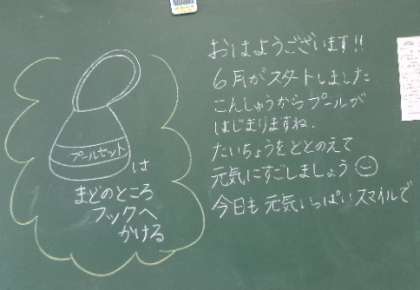 プールセット
は
まどのところ
フックへ
かける
おはようございます!!
6月がスタートしました
こんしゅうからプールが
はじまりますね.
たいちょうをととのえて
元気にすごしましょう
今日も元気いっぱいスマイルで